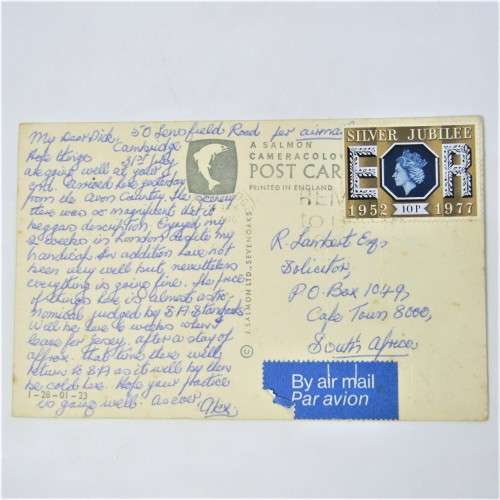 My Dear Dick, 50 Lensfield Road per airmail
Cambridge
Hope things 31st July
are going well at your
end. Arrived here yesterday
from the Avon Country. The scenery
there was so magnificent that it
beggars description. Enjoyed my
2 weeks in London despite my
handicap. In addition have not
been very well but, nevertheless
everything is going fine. The price
of things here is almost astro-
nomical judged by S.A. Standards.
Will be here 2 weeks when I
leave for Jersey, after a stay of
approx. that time there will
return to SA as it will by then
be cold here. Hope your practice
is going well. As ever
Alex
1-26-01-23
A SALMON
CAMERACOLOUR
POST CARD
PRINTED IN ENGLAND
J. SALMON LTD. SEVENOAKS
©
SILVER JUBILEE
E R
1952 10P 1977
R. Lambert Esq
Solicitor,
P.O. Box 1049,
Cape Town 8000,
South Africa
By air mail
Par avion